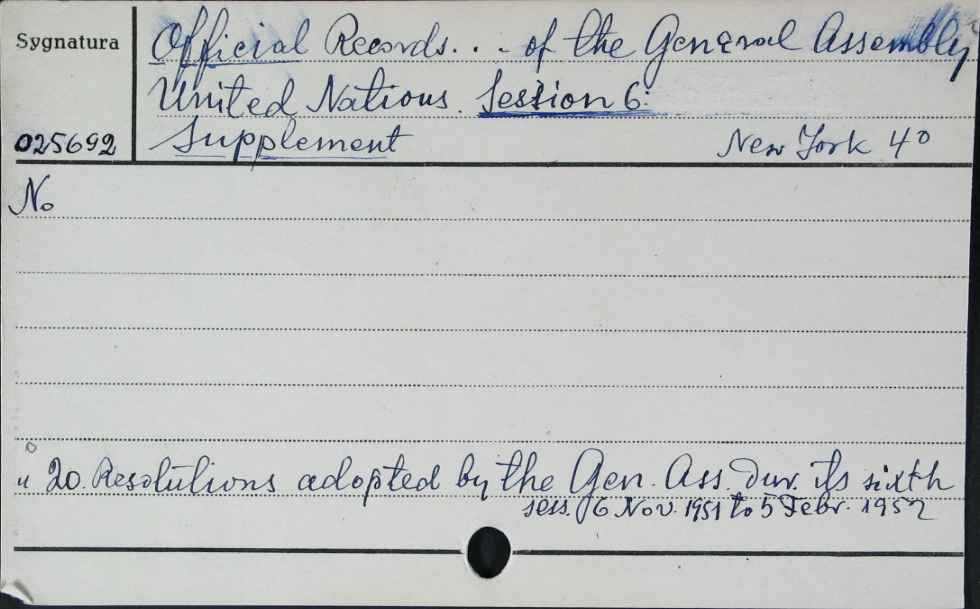 Sygnatura
025692
Official Records... of the General Assembly
United Nations. Session 6:
Supplement New York 4°
No
" 20. Resolutions adopted by the Gen. Ass. dur. its sixth
sess. 6 Nov. 1951 to 5 Febr. 1952